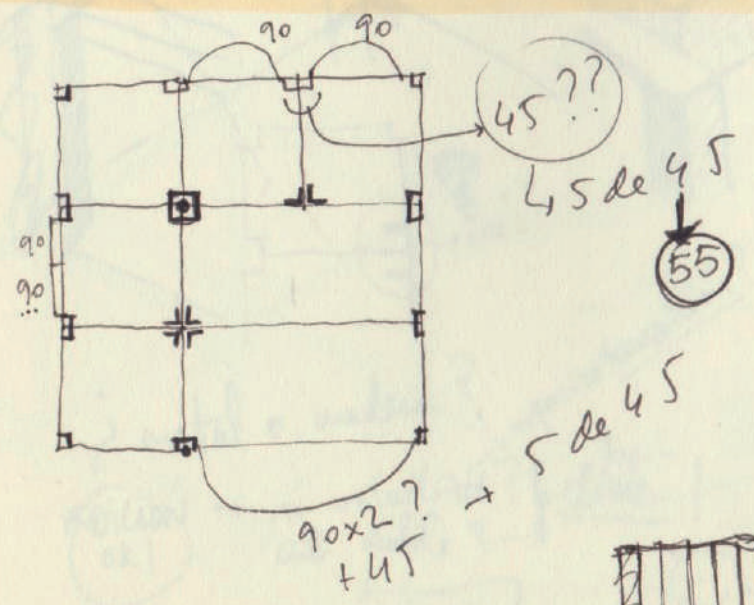 90 90
45 ??
45 de 45
55
90
90
5 de 45
90x2 ?
+45